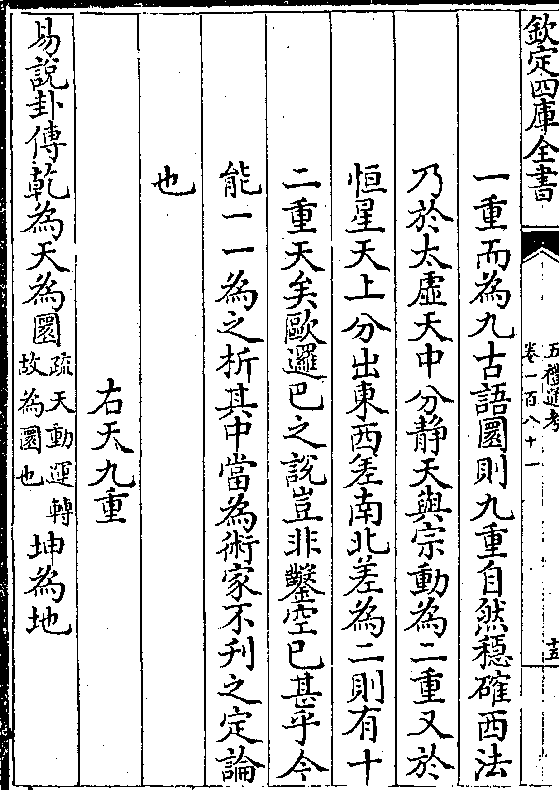 欽定四庫全書
五禮通考
卷一百八十一
十五
一重而為九古語圜則九重自然穩確西法
乃於太虛天中分静天與宗動為二重又於
恒星天上分出東西差南北差為二則有十
二重天矣歐邏巴之説豈非鑿空已甚乎今
能一一為之析其中當為術家不刋之定論
也
右天九重
易說卦傳乾為天為圜疏天動運轉故為圜也坤為地